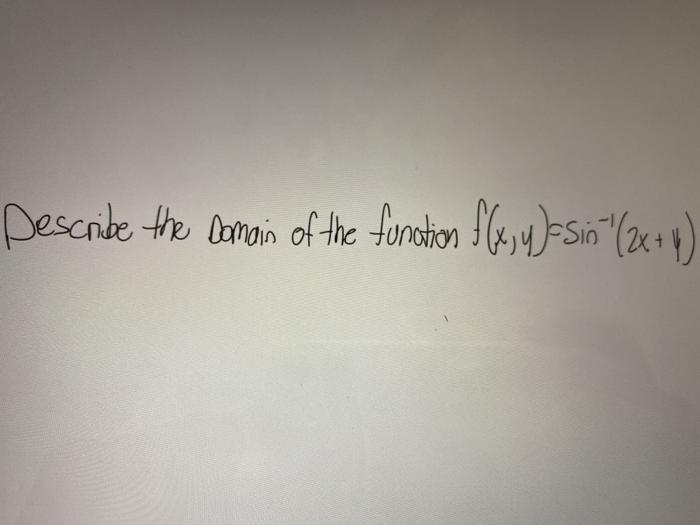 Describe the Domain of the function f(x,y)=sin⁻¹(2x+y)